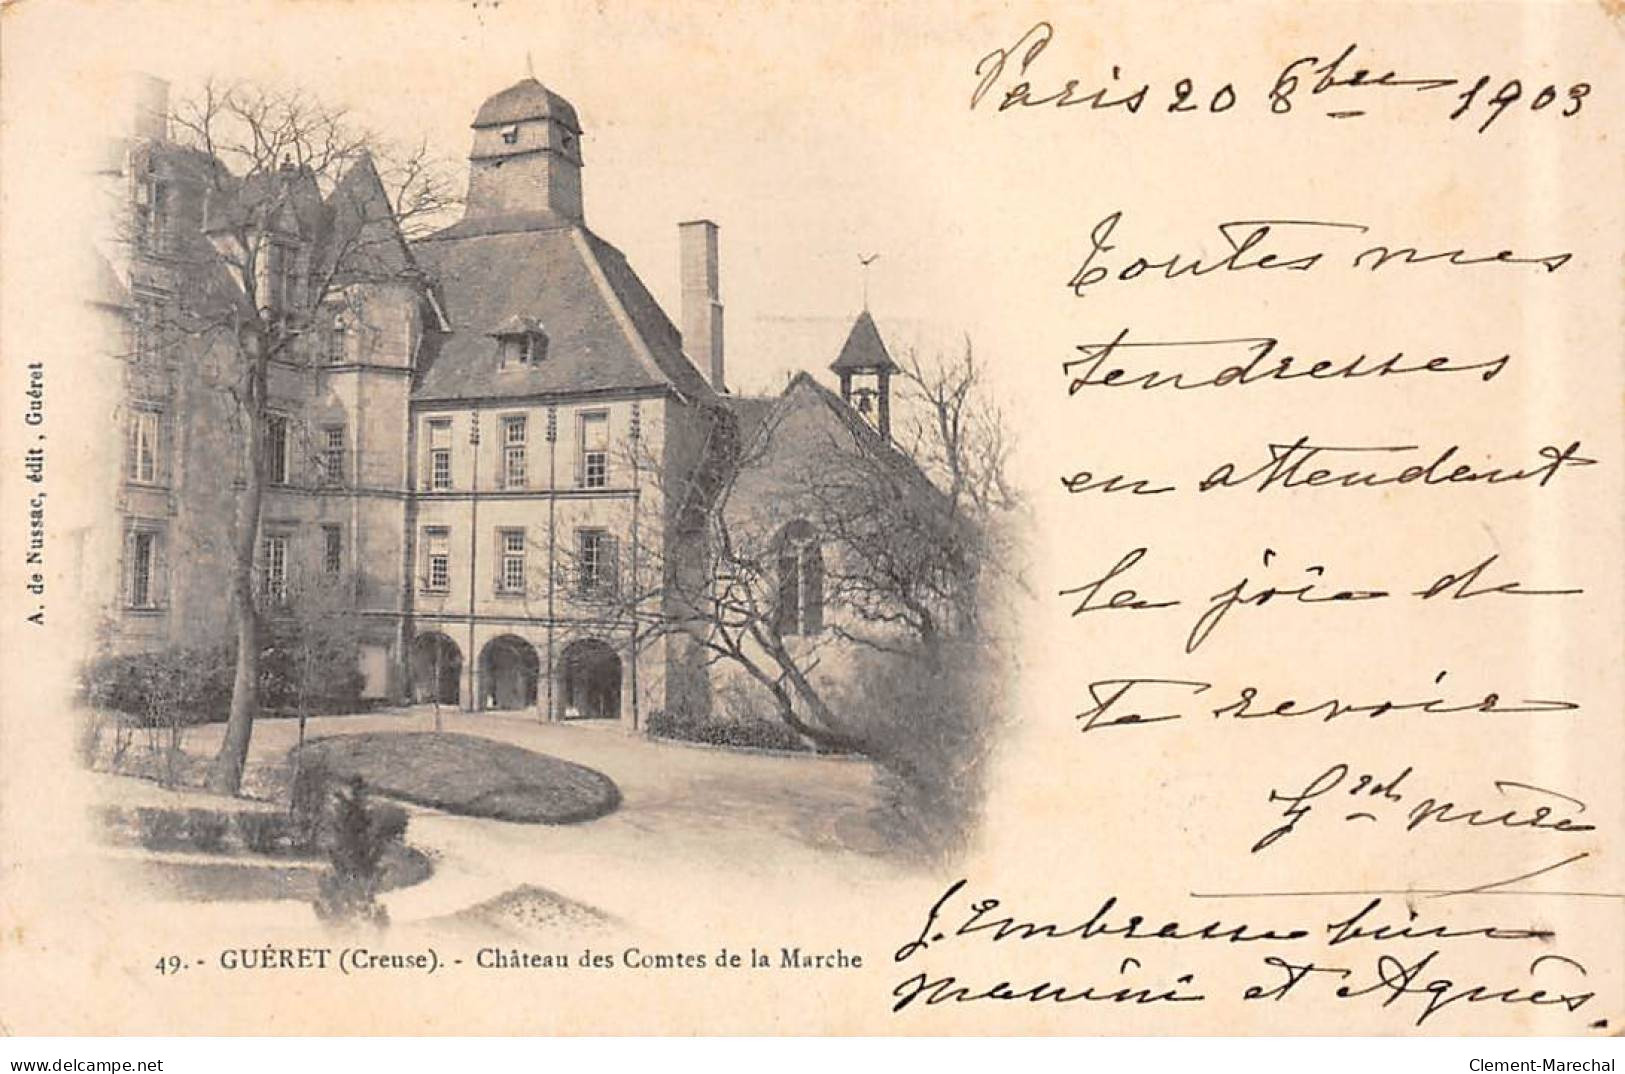 Paris 20 8bre 1903
Toutes mes
tendresses
en attendant
la joie de
te revoir
Grd mère
J'Embrasse bien
et Agnès.
A. de Nussac, édit, Guéret
49.- GUÉRET (Creuse). - Château des Comtes de la Marche
delcampe.net
Clement-Marechal